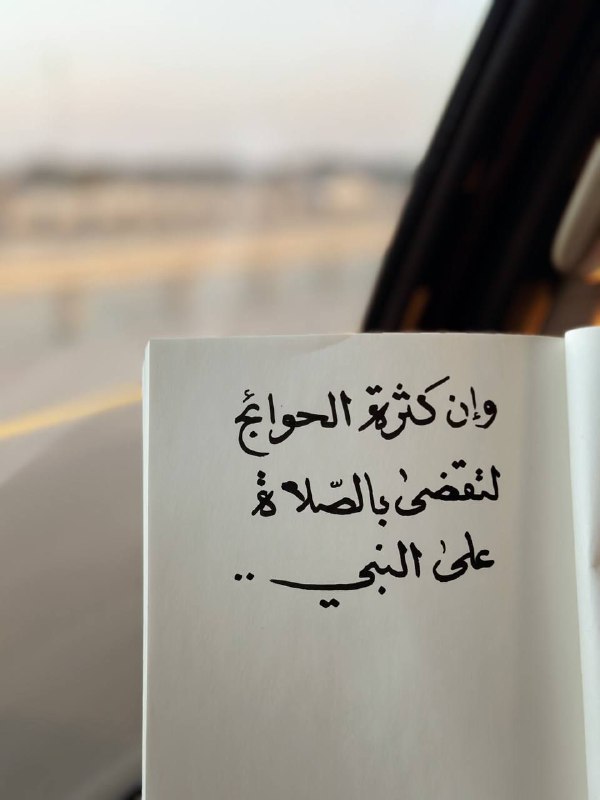 وإن كثرة الحوائج
لتقضىٰ بالصّلاة
علىٰ النبي ..